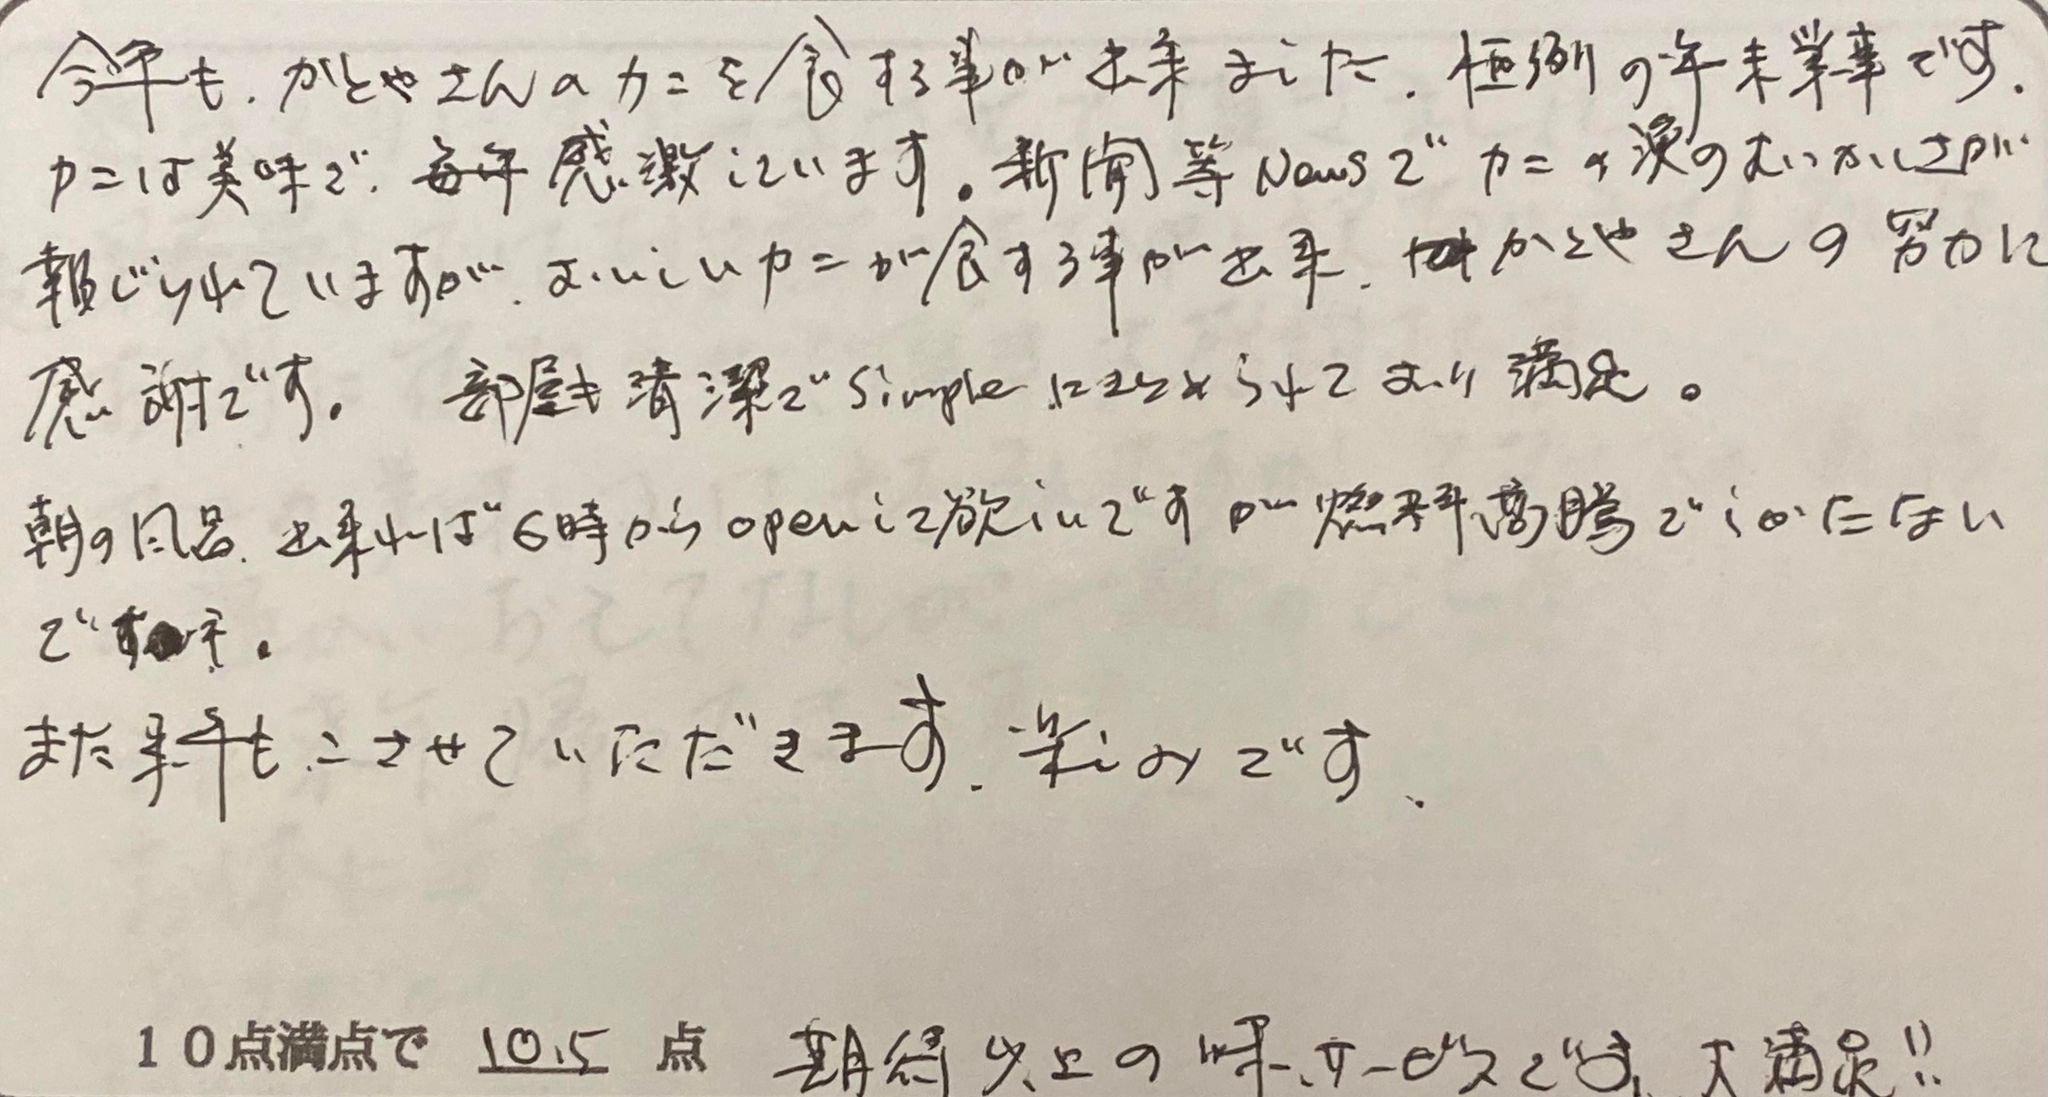 今年も、かとやさんのカニを食する事が出来ました。恒例の年末業事です。
カニは美味で、毎年感激しています。新聞等NewsでカニのÂ漁のむつかしさが
報じられていますが、おいしいカニが食する事が出来、かとやさんの努力に
感謝です。 部屋も清潔でSimpleにまとめられており満足。
朝の風呂、出来れば6時からopenして欲しいですが燃料高騰でしかたない
ですネ。
また来年もこさせていただきます。楽しみです、
10点満点で 10.5 点 期待以上の味、サービスです、大満足!!